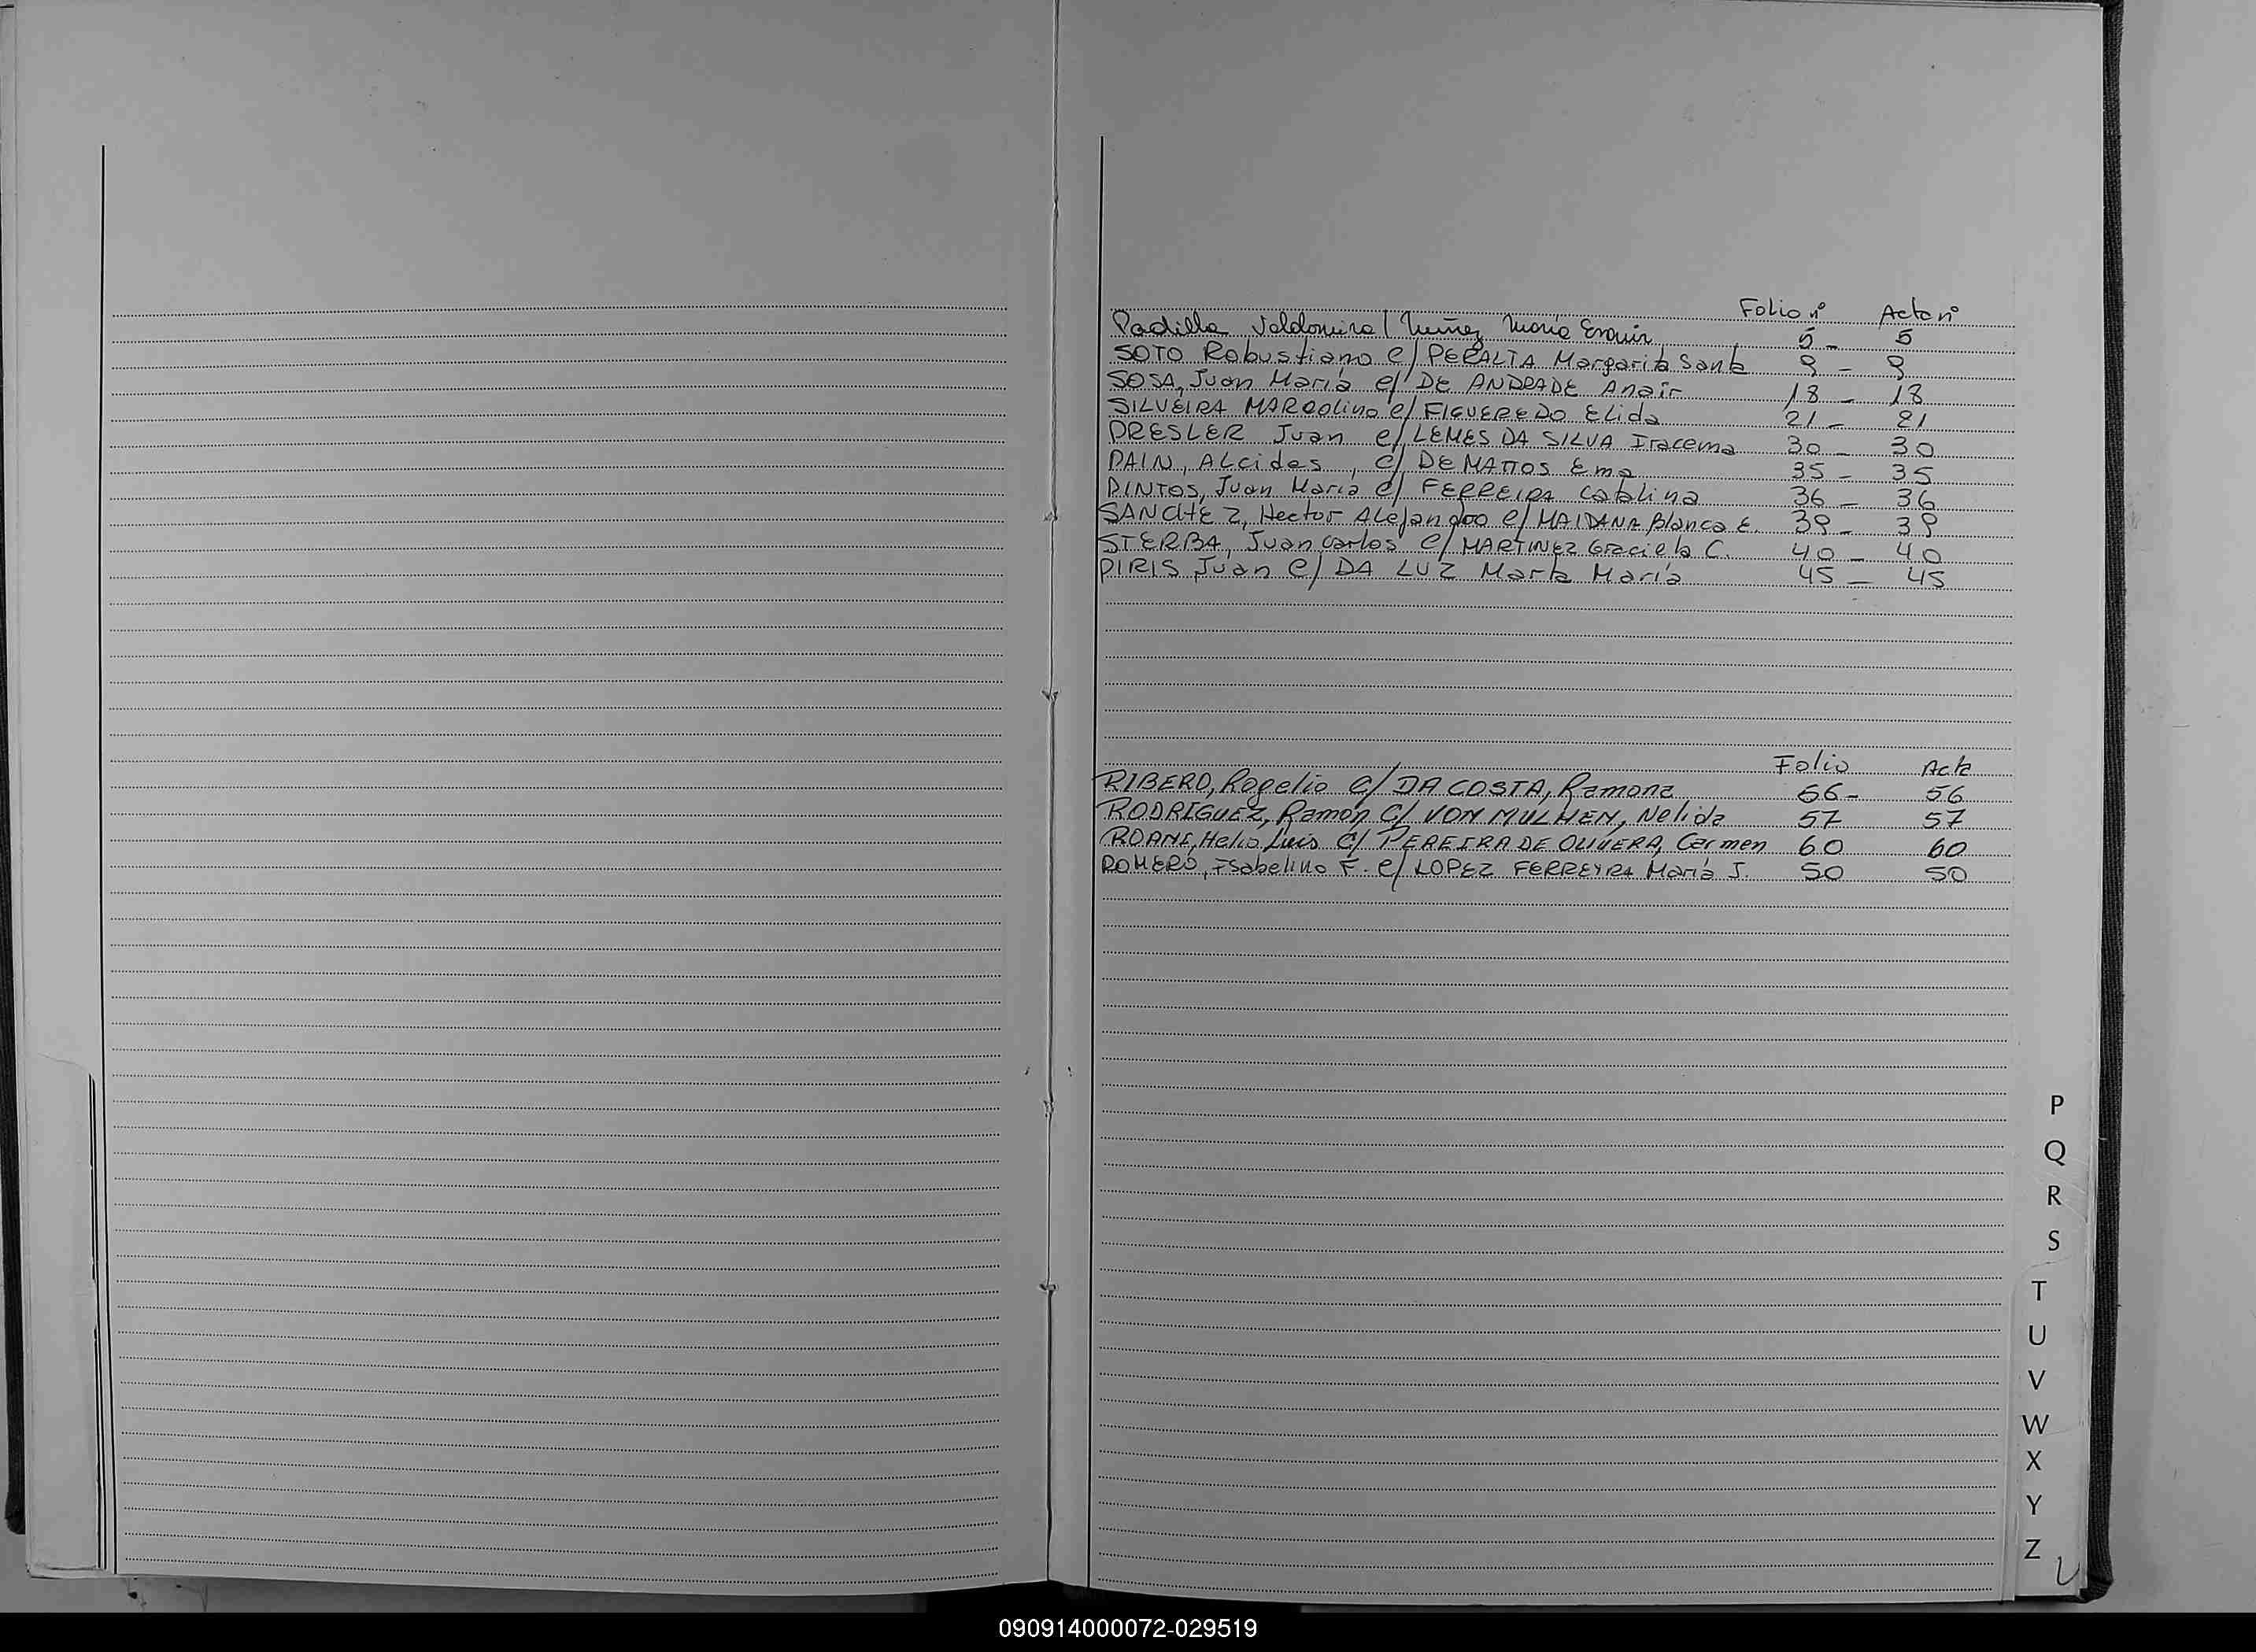 Folio nº Acta nº
Padilla Valdomiro / Nuñez Maria 5 - 5
SOTO Robustiano c/ PERALTA Margarita Santa 9 - 9
SOSA, Juan María c/ DE ANDRADE Anair 18 - 18
SILVEIRA MARCOLino c/ FIGUEREDO Elida 21 - 21
PRESLER Juan c/ LEMES DA SILVA Iracema 30 - 30
PAIN, ALcides, c/ DE MATTOS Ema 35 - 35
PINTOS, Juan María c/ FERREIRA Catalina 36 - 36
SANCHEZ, Hector Alejandro c/ MAIDANA Blanca E. 39 - 39
STERBA, Juan Carlos c/ MARTINEZ Graciela C. 40 - 40
PIRIS, Juan c/ DA LUZ Marta María 45 - 45
Folio Acta
RIBERO, Rogelio c/ DA COSTA, Ramona 56 - 56
RODRIGUEZ, Ramón C/ VON MULHEN, Nelida 57 57
ROANI, Helio Luis c/ PEREIRA DE OLIVERA, Carmen 60 60
ROMERO, Isabelino F. c/ LOPEZ FERREYRA María J. 50 50
P
Q
R
S
T
U
V
W
X
Y
Z
090914000072-029519